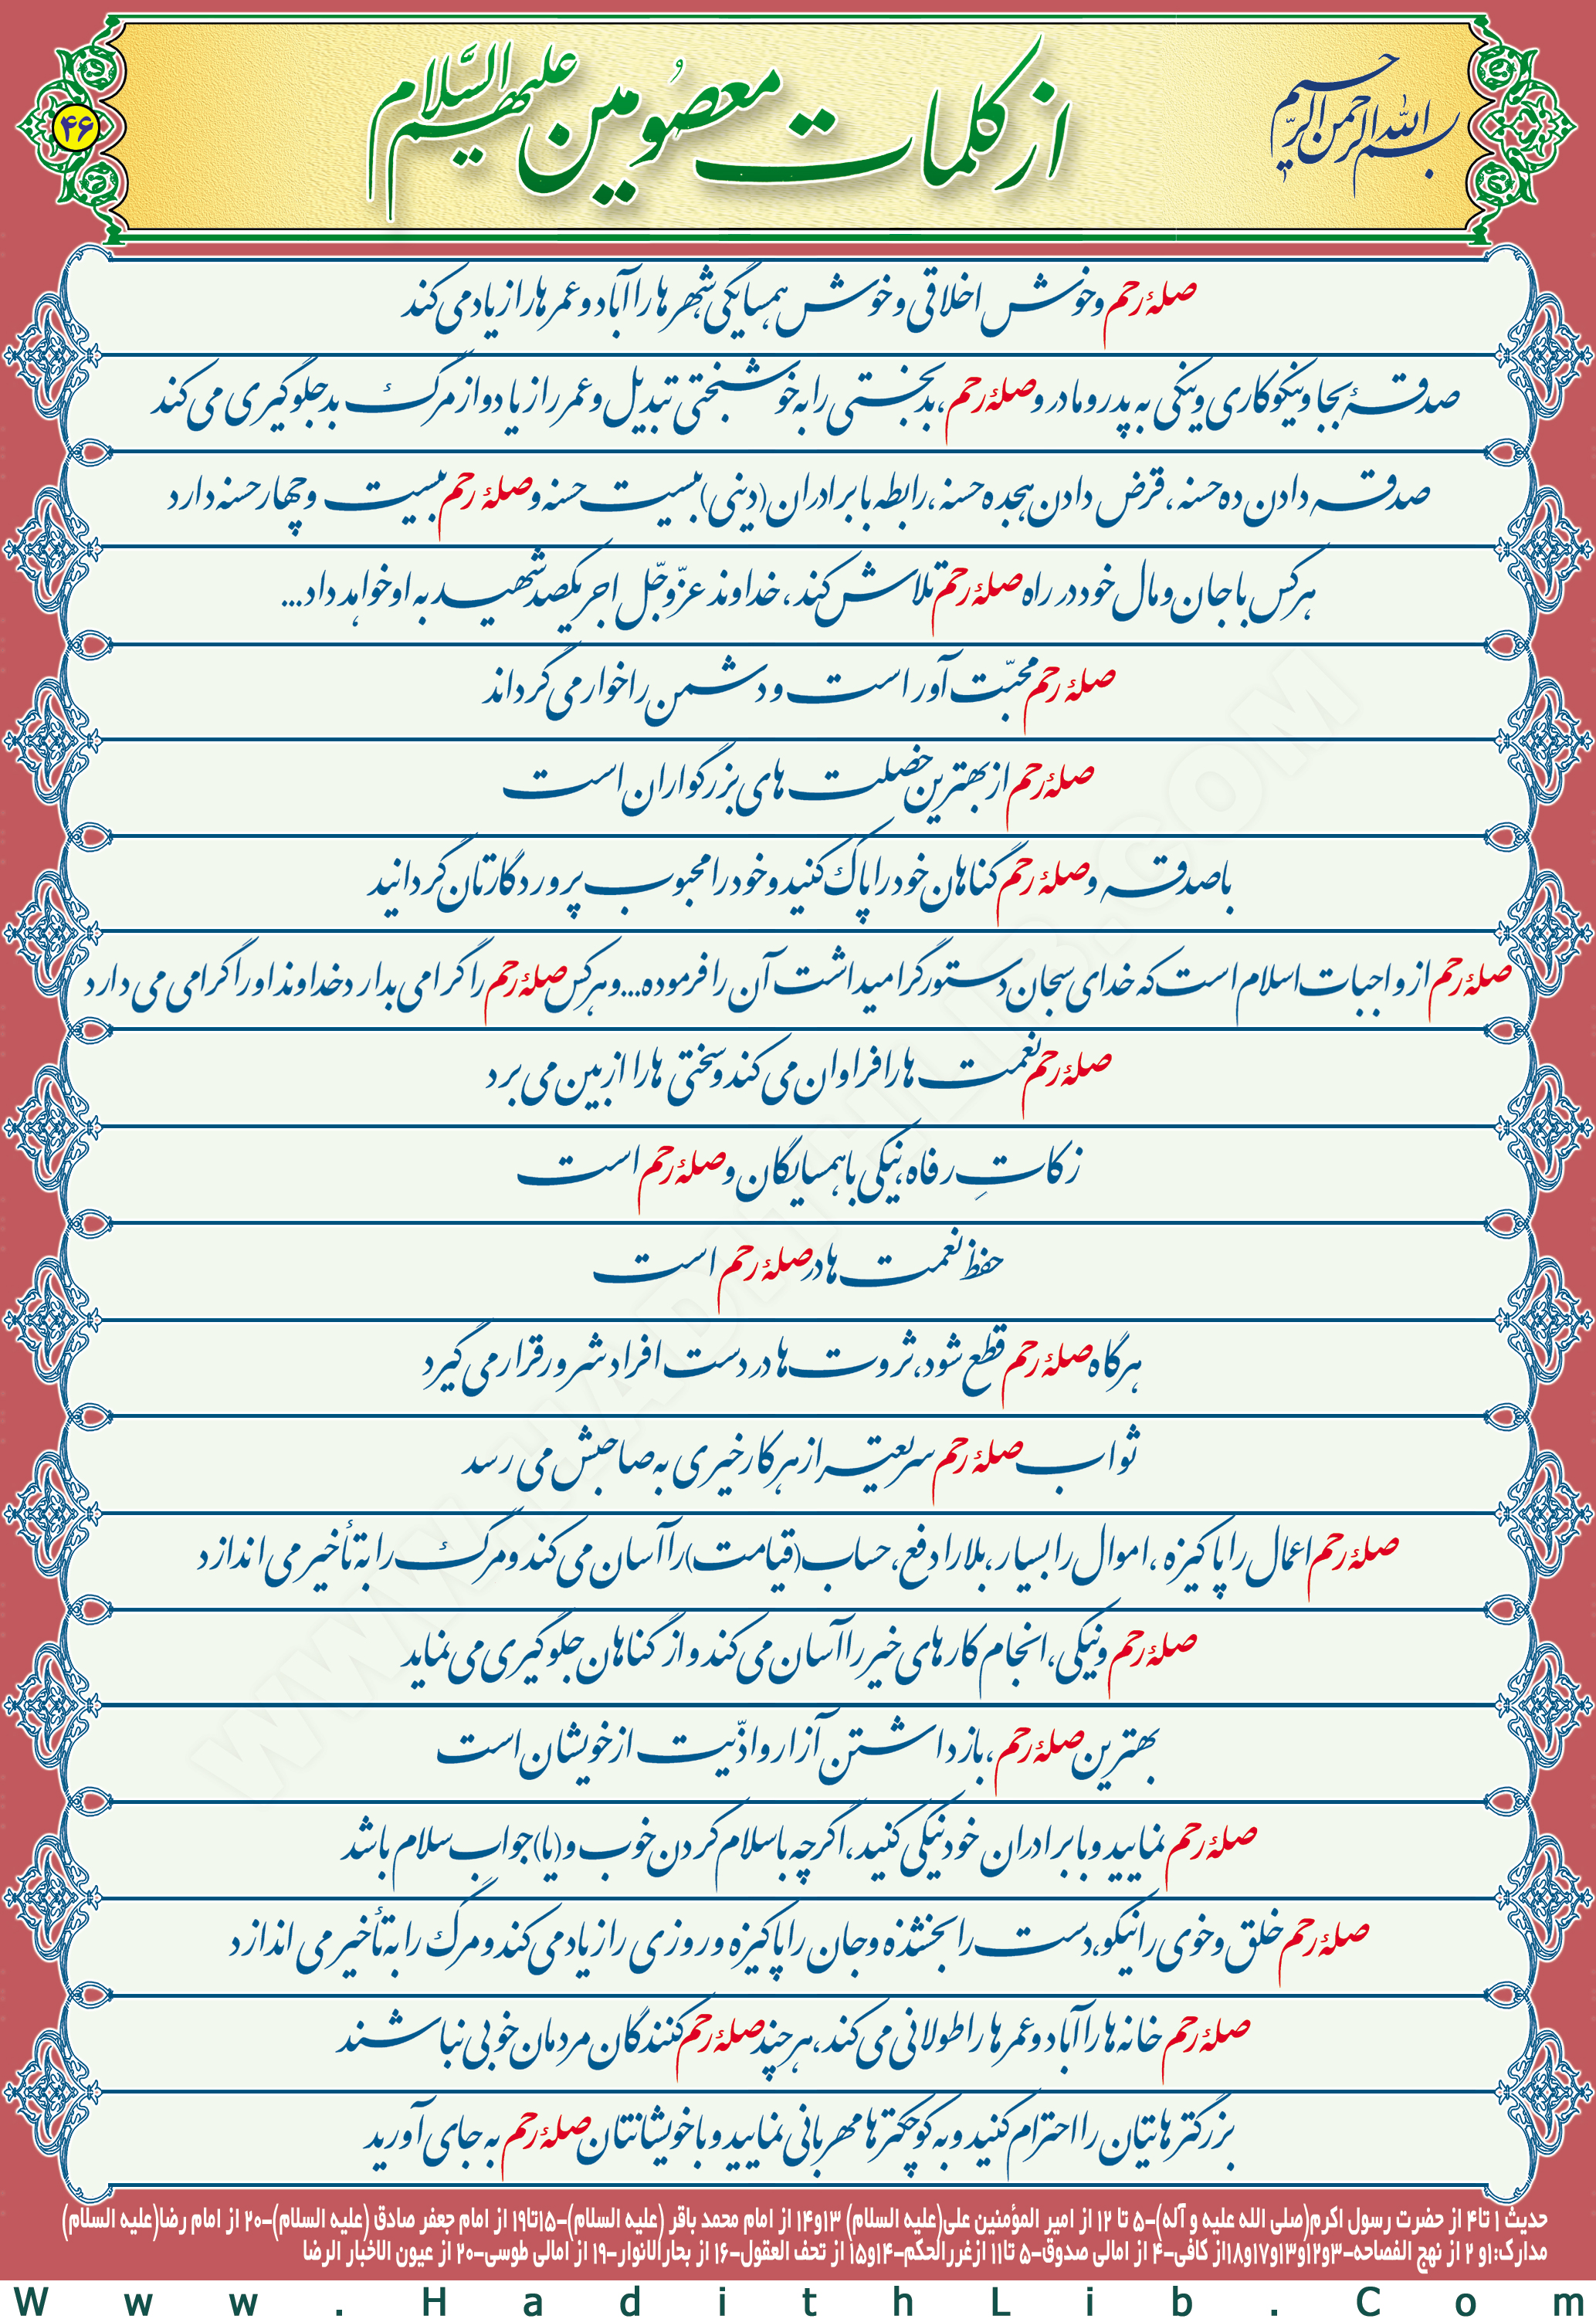 بسم الله الرحمن الرحیم
از کلمات معصومین علیهم السّلام
۴۶
صلۀ رحم و خوش اخلاقی و خوش همسایگی شهرها را آباد و عمرها را زیاد می کند
صدقۀ بجا و نیکوکاری و نیکی به پدر و مادر و صلۀ رحم، بدبختی را به خوشبختی تبدیل و عمر را زیاد و از مرگ بد جلوگیری می کند
صدقه دادن ده حسنه، قرض دادن هجده حسنه، رابطه با برادران (دینی) بیست حسنه و صلۀ رحم بیست و چهار حسنه دارد
هر کس با جان و مال خود در راه صلۀ رحم تلاش کند، خداوند عزّوجّل اجر یکصد شهید به او خواهد داد...
صلۀ رحم محبّت آور است و دشمن را خوار می گرداند
صلۀ رحم از بهترین خصلت های بزرگواران است
با صدقه و صلۀ رحم گناهان خود را پاک کنید و خود را محبوب پروردگارتان گردانید
صلۀ رحم از واجبات اسلام است که خدای سبحان دستور گرامیداشت آن را فرموده... و هر کس صلۀ رحم را گرامی بدارد خداوند او را گرامی می دارد
صلۀ رحم نعمت ها را فراوان می کند و سختی ها را از بین می برد
زکاتِ رفاه، نیکی با همسایگان و صلۀ رحم است
حفظ نعمت ها در صلۀ رحم است
هرگاه صلۀ رحم قطع شود، ثروت ها در دست افراد شرور قرار می گیرد
ثواب صلۀ رحم سریعتر از هر کار خیری به صاحبش می رسد
صلۀ رحم اعمال را پاکیزه، اموال را بسیار، بلا را دفع، حساب (قیامت) را آسان می کند و مرگ را به تأخیر می اندازد
صلۀ رحم و نیکی، انجام کارهای خیر را آسان می کند و از گناهان جلوگیری می نماید
بهترین صلۀ رحم، بازداشتن آزار و اذّیت از خویشان است
صلۀ رحم نمایید و با برادران خود نیکی کنید، اگرچه با سلام کردن خوب و (یا) جواب سلام باشد
صلۀ رحم خلق و خوی را نیکو، دست را بخشنده و جان را پاکیزه و روزی را زیاد می کند و مرگ را به تأخیر می اندازد
صلۀ رحم خانه ها را آباد و عمرها را طولانی می کند، هر چند صلۀ رحم کنندگان مردمان خوبی نباشند
بزرگترهایتان را احترام کنید و به کوچکترها مهربانی نمایید و با خویشانتان صلۀ رحم به جای آورید
حدیث ۱ تا۴ از حضرت رسول اکرم(صلی الله علیه و آله)-۵ تا ۱۲ از امیر المؤمنین علی(علیه السلام) ۱۳و۱۴ از امام محمد باقر (علیه السلام)-۱۵تا۱۹ از امام جعفر صادق (علیه السلام)-۲۰ از امام رضا(علیه السلام)
مدارک:۱و ۲ از نهج الفصاحه-۳و۱۲و۱۳و۱۷و۱۸از کافی-۴ از امالی صدوق-۵ تا۱۱ ازغررالحکم-۱۴و۱۵ از تحف العقول-۱۶ از بحارالانوار-۱۹ از امالی طوسی-۲۰ از عیون الاخبار الرضا
Www.HadithLib.Com
WWW.HADITHLIB.COM